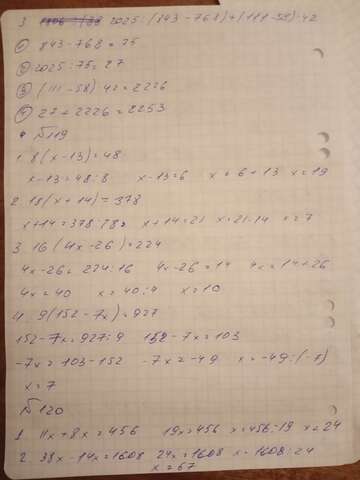 3. 2025:(843-768)+(111-58)·42
① 843-768=75
② 2025:75=27
③ (111-58)·42=2226
④ 27+2226=2253
№119
1. 8(x-13)=48
x-13=48:8 x-13=6 x=6+13 x=19
2. 18(x+14)=378
x+14=378:18 x+14=21 x=21-14 x=7
3. 16(4x-26)=224
4x-26=224:16 4x-26=14 4x=14+26
4x=40 x=40:4 x=10
4. 9(152-7x)=927
152-7x=927:9 152-7x=103
-7x=103-152 -7x=-49 x=-49:(-7)
x=7
№120
1. 11x+8x=456 19x=456 x=456:19 x=24
2. 38x-14x=1608 24x=1608 x=1608:24
x=67